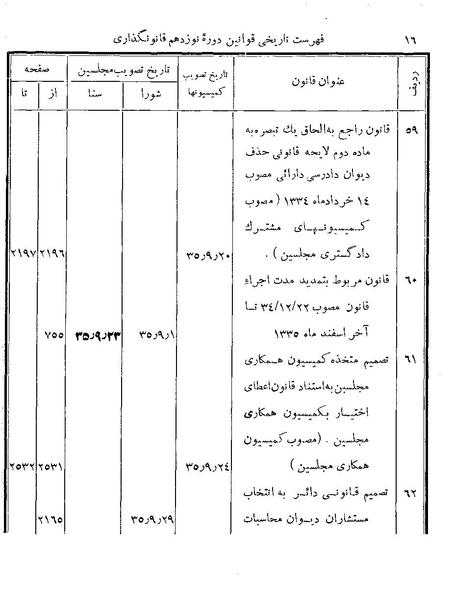 ۱۶ فهرست تاریخی قوانین دورهٔ نوزدهم قانونگذاری
ردیف عنوان قانون تاریخ تصویب کمیسیونها تاریخ تصویب مجلسین صفحه
شورا سنا از تا
۵۹ قانون راجع به الحاق یك تبصره به
ماده دوم لایحه قانونی حذف
دیوان دادرسی دارائی مصوب
۱۴ خردادماه ۱۳۳۴ (مصوب
کمیسیونهای مشترك
دادگستری مجلسین). ۳۵ر۹ر۲۰ ۲۱۹۶ ۲۱۹۷
۶۰ قانون مربوط بتمدید مدت اجراء
قانون مصوب ۳۴/۱۲/۲۲ تا
آخر اسفند ماه ۱۳۳۵ ۳۵ر۹ر۱ ۳۵ر۹ر۲۳ ۷۵۵
۶۱ تصمیم متخذه کمیسیون همکاری
مجلسین به استناد قانون اعطای
اختیار بکمیسیون همکاری
مجلسین. (مصوب کمیسیون
همکاری مجلسین) ۳۵ر۹ر۲۴ ۲۵۳۱ ۲۵۳۲
۶۲ تصمیم قانونی دائر به انتخاب
مستشاران دیوان محاسبات ۳۵ر۹ر۲۹ ۲۱۶۵